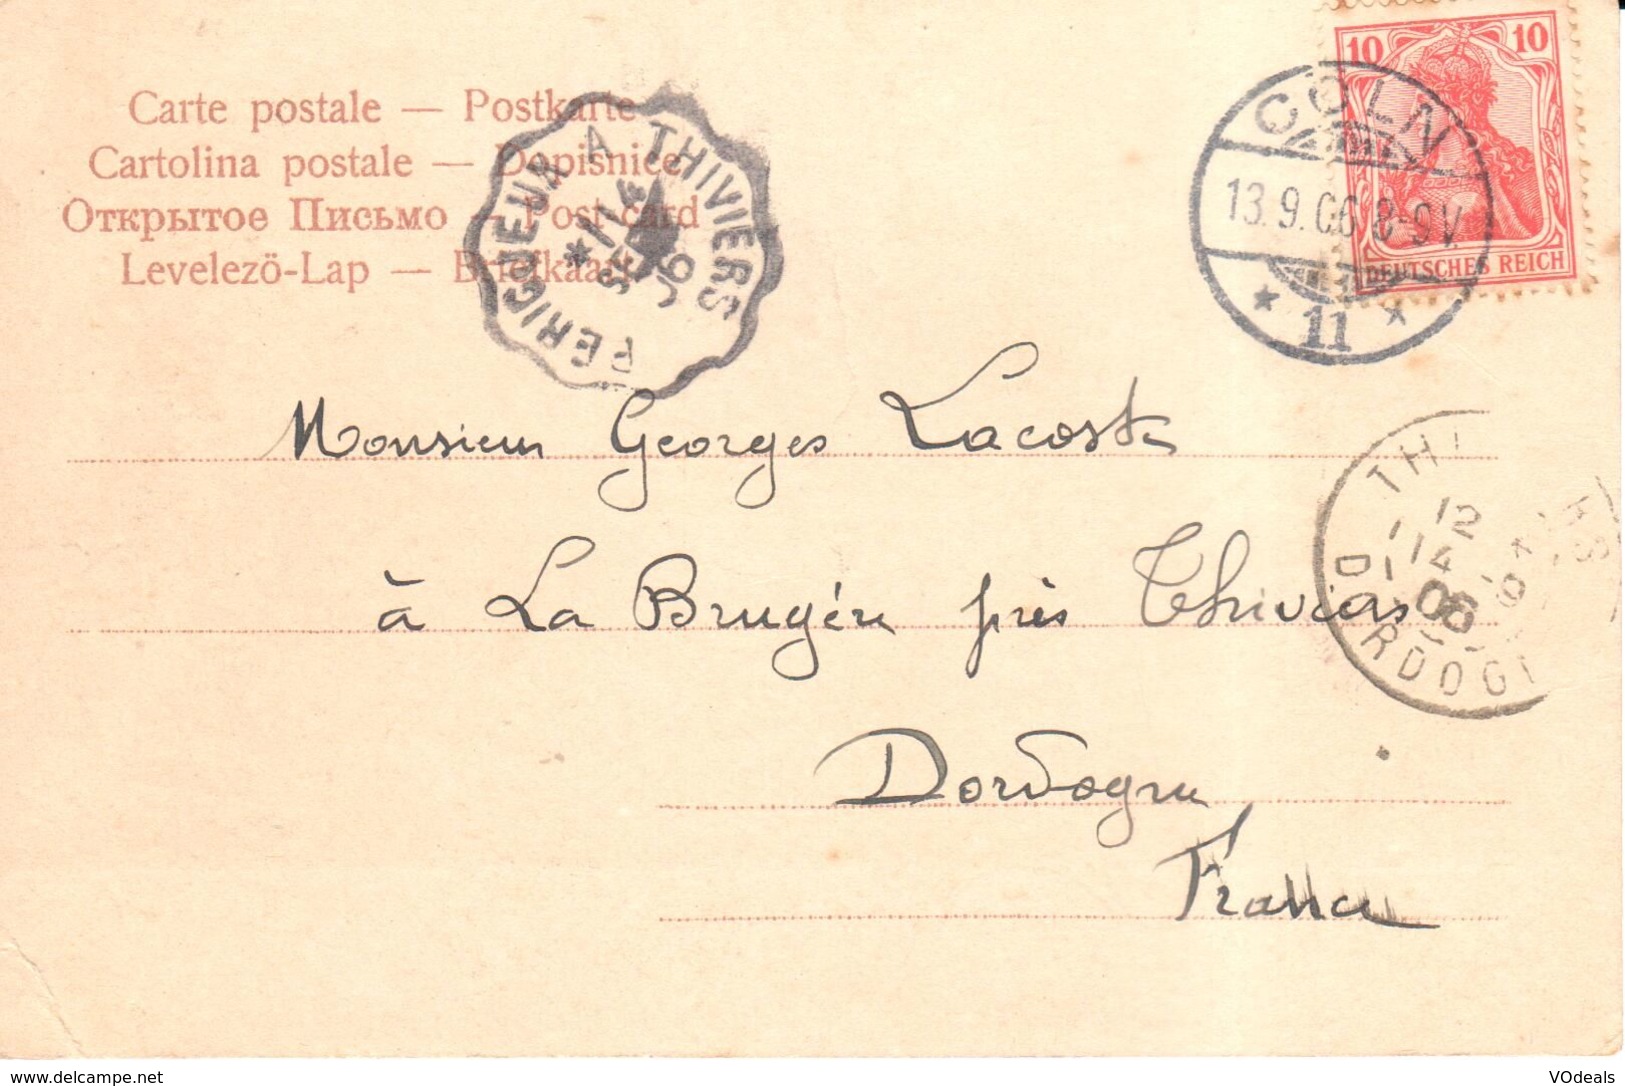 Carte postale — Postkarte
Cartolina postale — Dopisnice
Открытое Письмо — Post card
Levelezö-Lap — Briefkaart
PERIGUEUX A THIVIERS
14
SEPT
06
10 10
DEUTSCHES REICH
CÖLN
13.9.06 8-9V.
* 11 *
Monsieur Georges Lacoste
à La Brugère près Thiviers
Dordogne
France
THI RS
12
14
06
DORDOG
www.delcampe.net
VOdeals